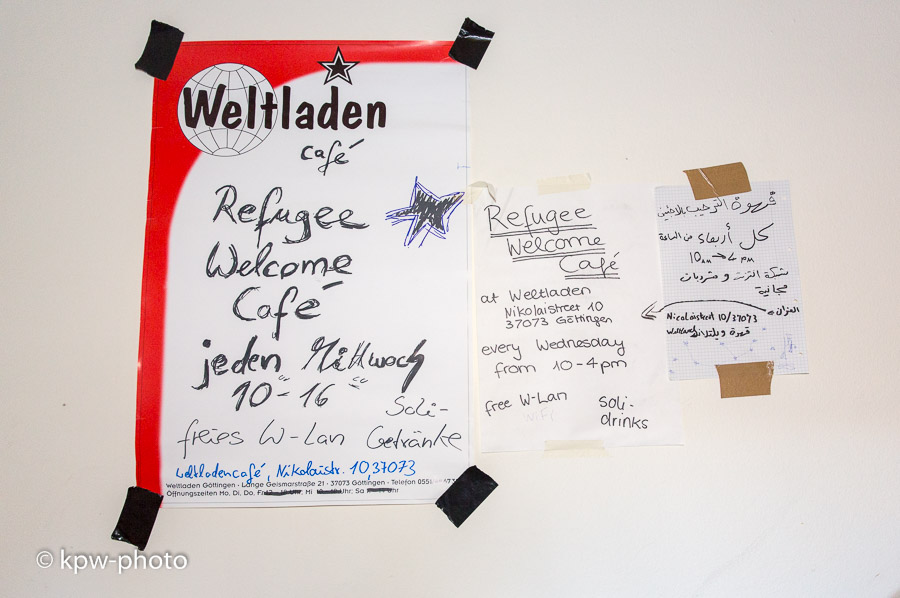 Weltladen
Café
Refugee
Welcome
Café
jeden Mittwoch
10⁰⁰ - 16⁰⁰
Soli-
freies W-Lan Getränke
Weltladencafé, Nikolaistr. 10, 37073
Weltladen Göttingen · Lange Geismarstraße 21 · 37073 Göttingen · Telefon 0551
Öffnungszeiten Mo, Di, Do, Fr Uhr, Mi Uhr; Sa Uhr
Refugee
Welcome
Café
at Weltladen
Nikolaistreet 10
37073 Göttingen
every Wednesday
from 10-4pm
free W-Lan
WiFi
soli-
drinks
قهوة الترحيب بلاجئين
كل أربعاء من الساعة
10 AM → 4 PM
شبكة النت و مشروبات
مجانية
العنوان
Nicolaistreet 10/37073
قهوة
© kpw-photo